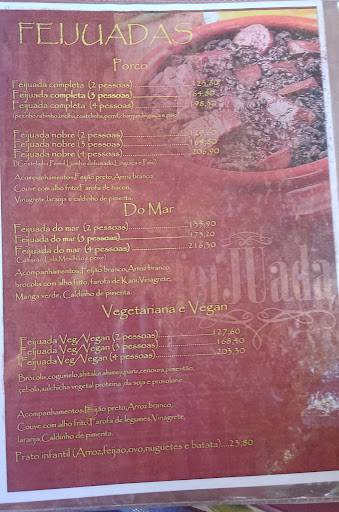 FEIJUADAS
Porco
Feijuada completa (2 pessoas)
Feijuada completa (3 pessoas) 164,50
Feijuada completa (4 pessoas) 198,50
Feijuada nobre (2 pessoas)
Feijuada nobre (3 pessoas)
Feijuada nobre (4 pessoas) 206,90
Acompanhamentos,Feijão preto,Arroz branco,
Couve com alho frito,Farofa de bacon,
Vinagrete,laranja e caldinho de pimenta.
Do Mar
Feijuada do mar (2 pessoas)
Feijuada do mar (3 pessoas)
Feijuada do mar (4 pessoas)
Acompanhamentos,Feijão branco,Arroz branco,
brocolis com alho frito, farofa de Kani,Vinagrete,
Manga verde, Caldinho de pimenta.
Vegetariana e Vegan
Feijuada Veg/Vegan (2 pessoas) 127,60
Feijuada Veg/Vegan (3 pessoas) 168,40
FeijuadaVeg/Vegan (4 pessoas)
cebola,salchicha vegetal proteina da soja e provolane.
Acompanhamentos,Feijão preto,Arroz branco,
Couve com alho frito,Farofa de legumes,Vinagrete,
laranja,Caldinho de pimenta.
Prato infantil (Arroz,feijao,ovo,nuguetes e batata)....23,80